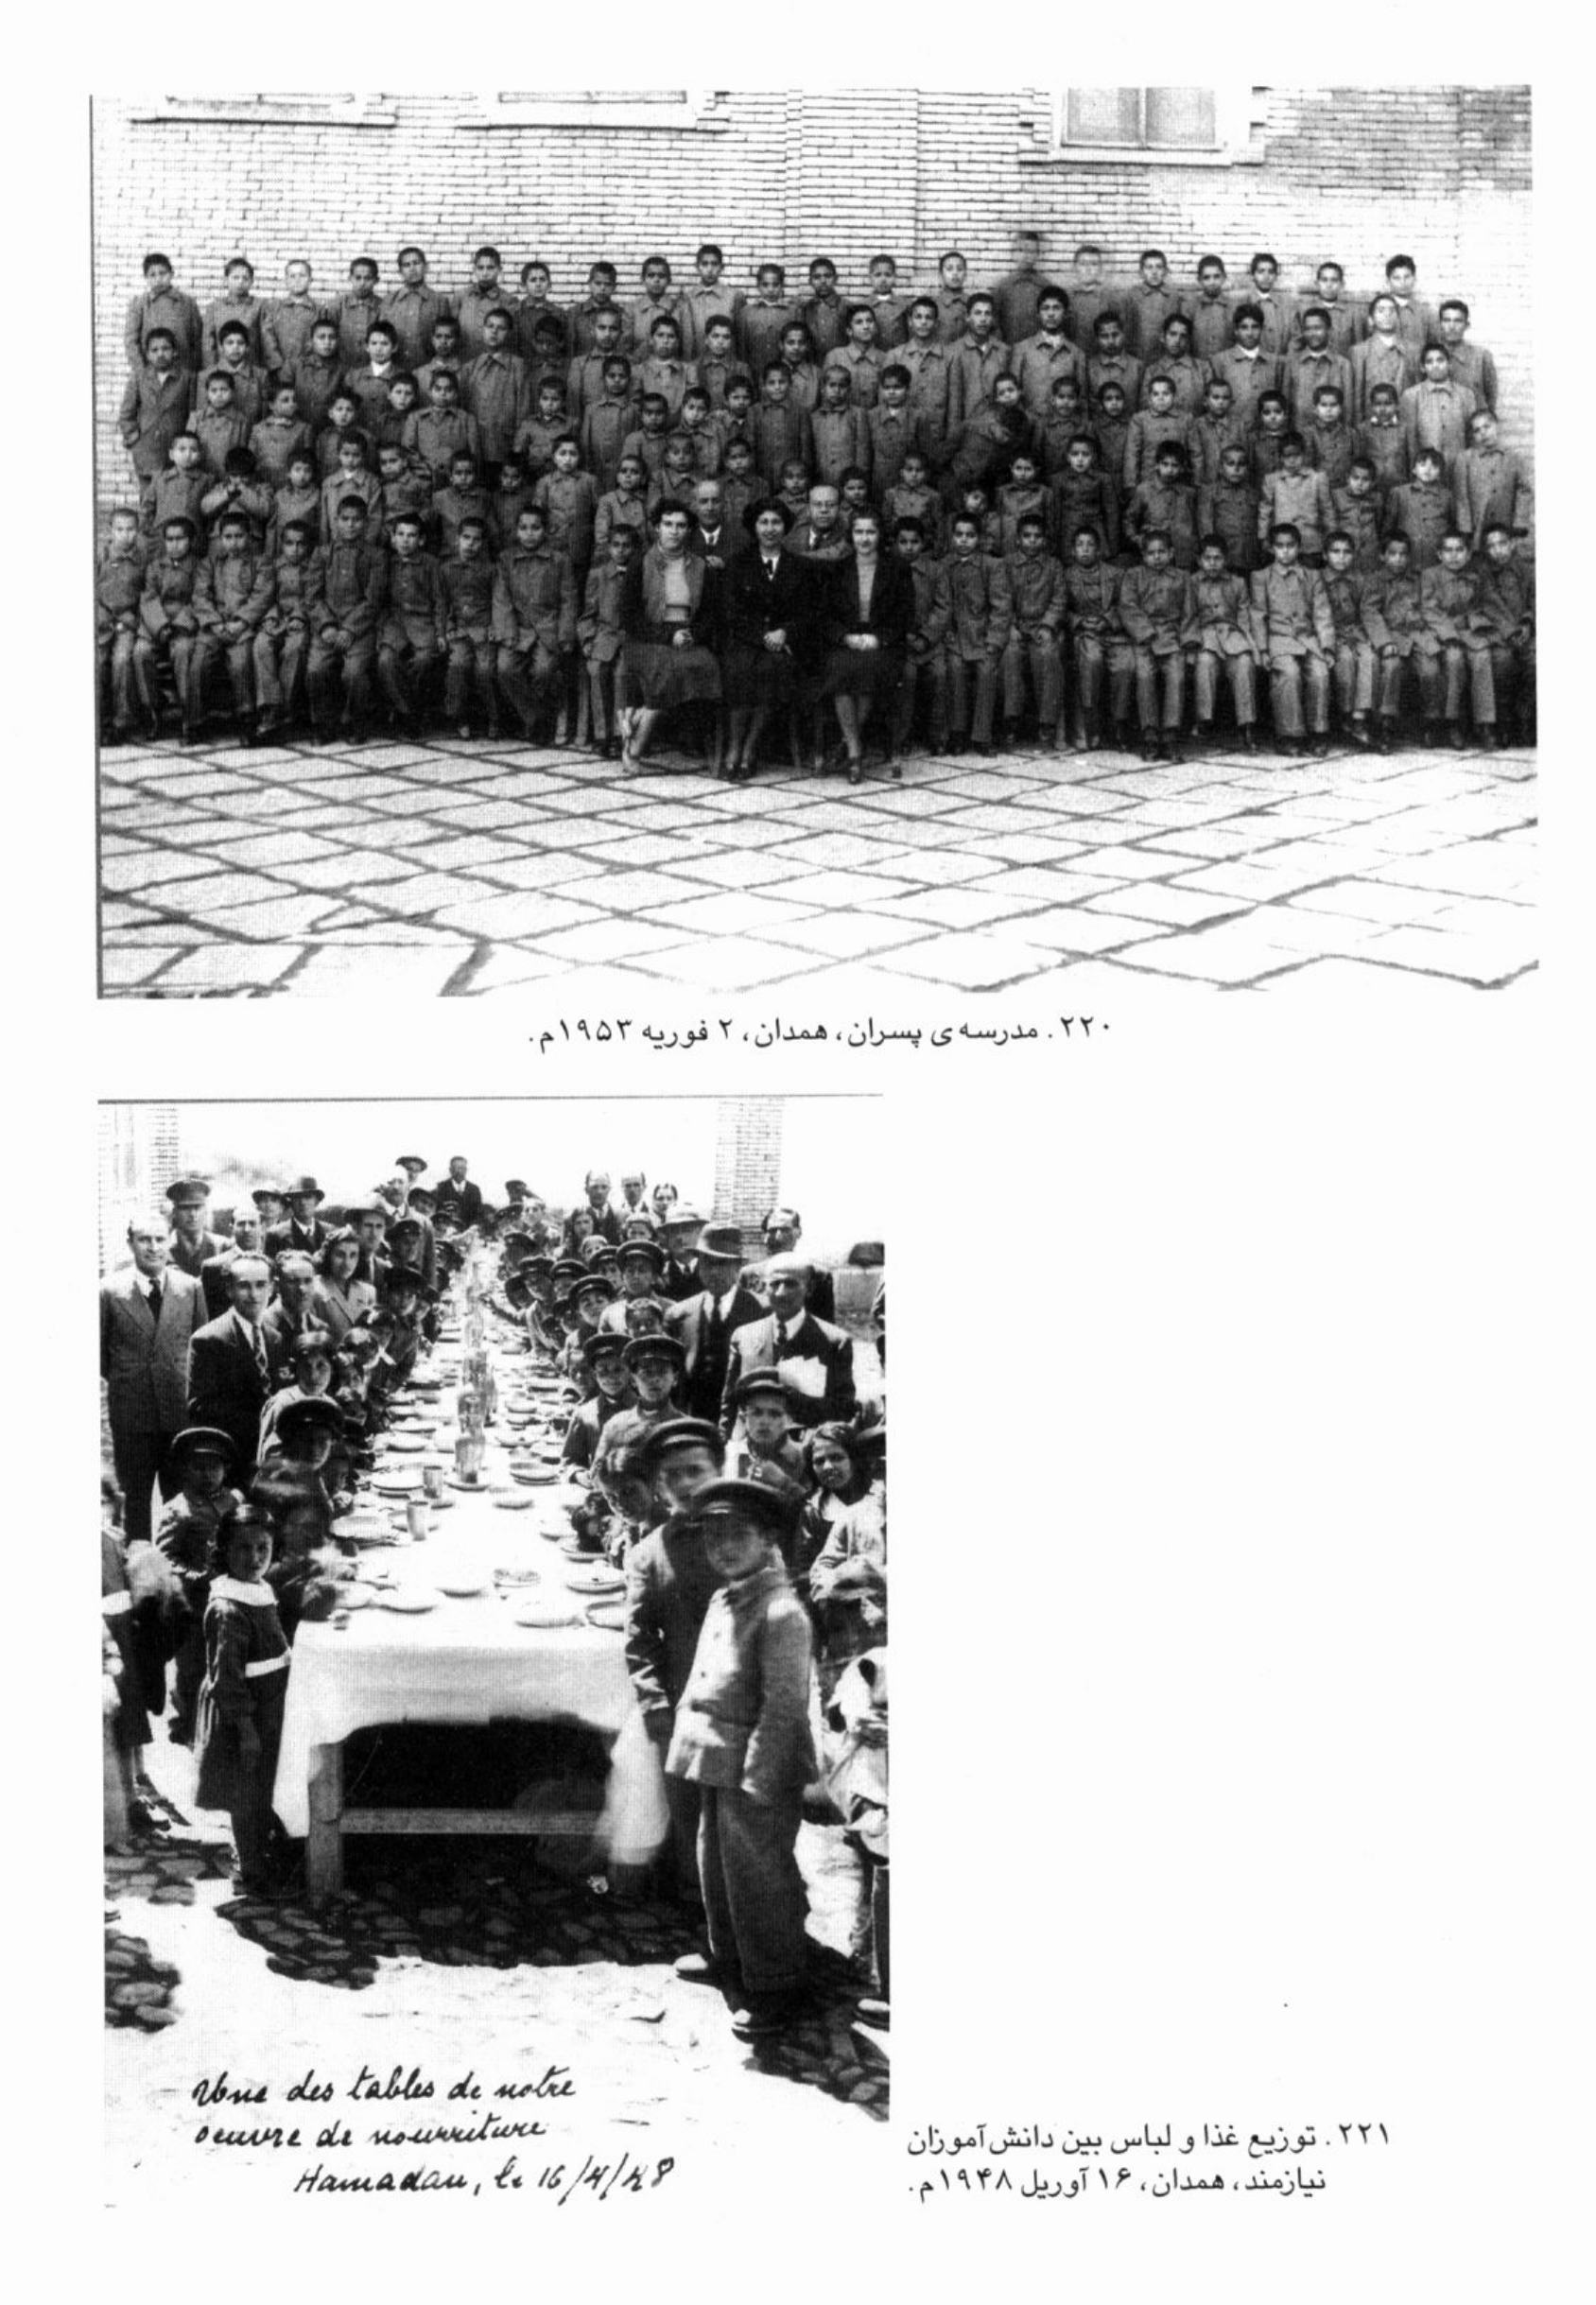 ۲۲۰. مدرسه‌ی پسران، همدان، ۲ فوریه ۱۹۵۳م.
Une des tables de notre
oeuvre de nourriture
Hamadan, le 16/4/48
۲۲۱. توزیع غذا و لباس بین دانش‌آموزان
نیازمند، همدان، ۱۶ آوریل ۱۹۴۸م.